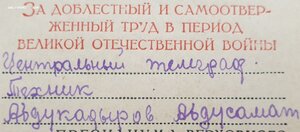 ЗА ДОБЛЕСТНЫЙ И САМООТВЕР-
ЖЕННЫЙ ТРУД В ПЕРИОД
ВЕЛИКОЙ ОТЕЧЕСТВЕННОЙ ВОЙНЫ
Центральный телеграф.
Техник
Абдукадыров Абдусамат